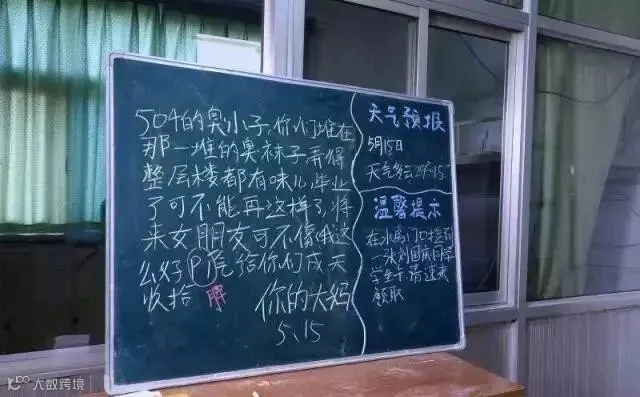 504的臭小子,你们堆在
那一堆的臭袜子弄得
整层楼都有味儿,毕业
了可不能再这样了,将
来女朋友可不像我这
么好P气给你们成天
收拾 脾
你的大妈
5、15
天气预报
5月15日
天气多云29°-15°
温馨提示
在水房门口捡到
一张刘国成同学
学生卡请速来
领取
大数跨境